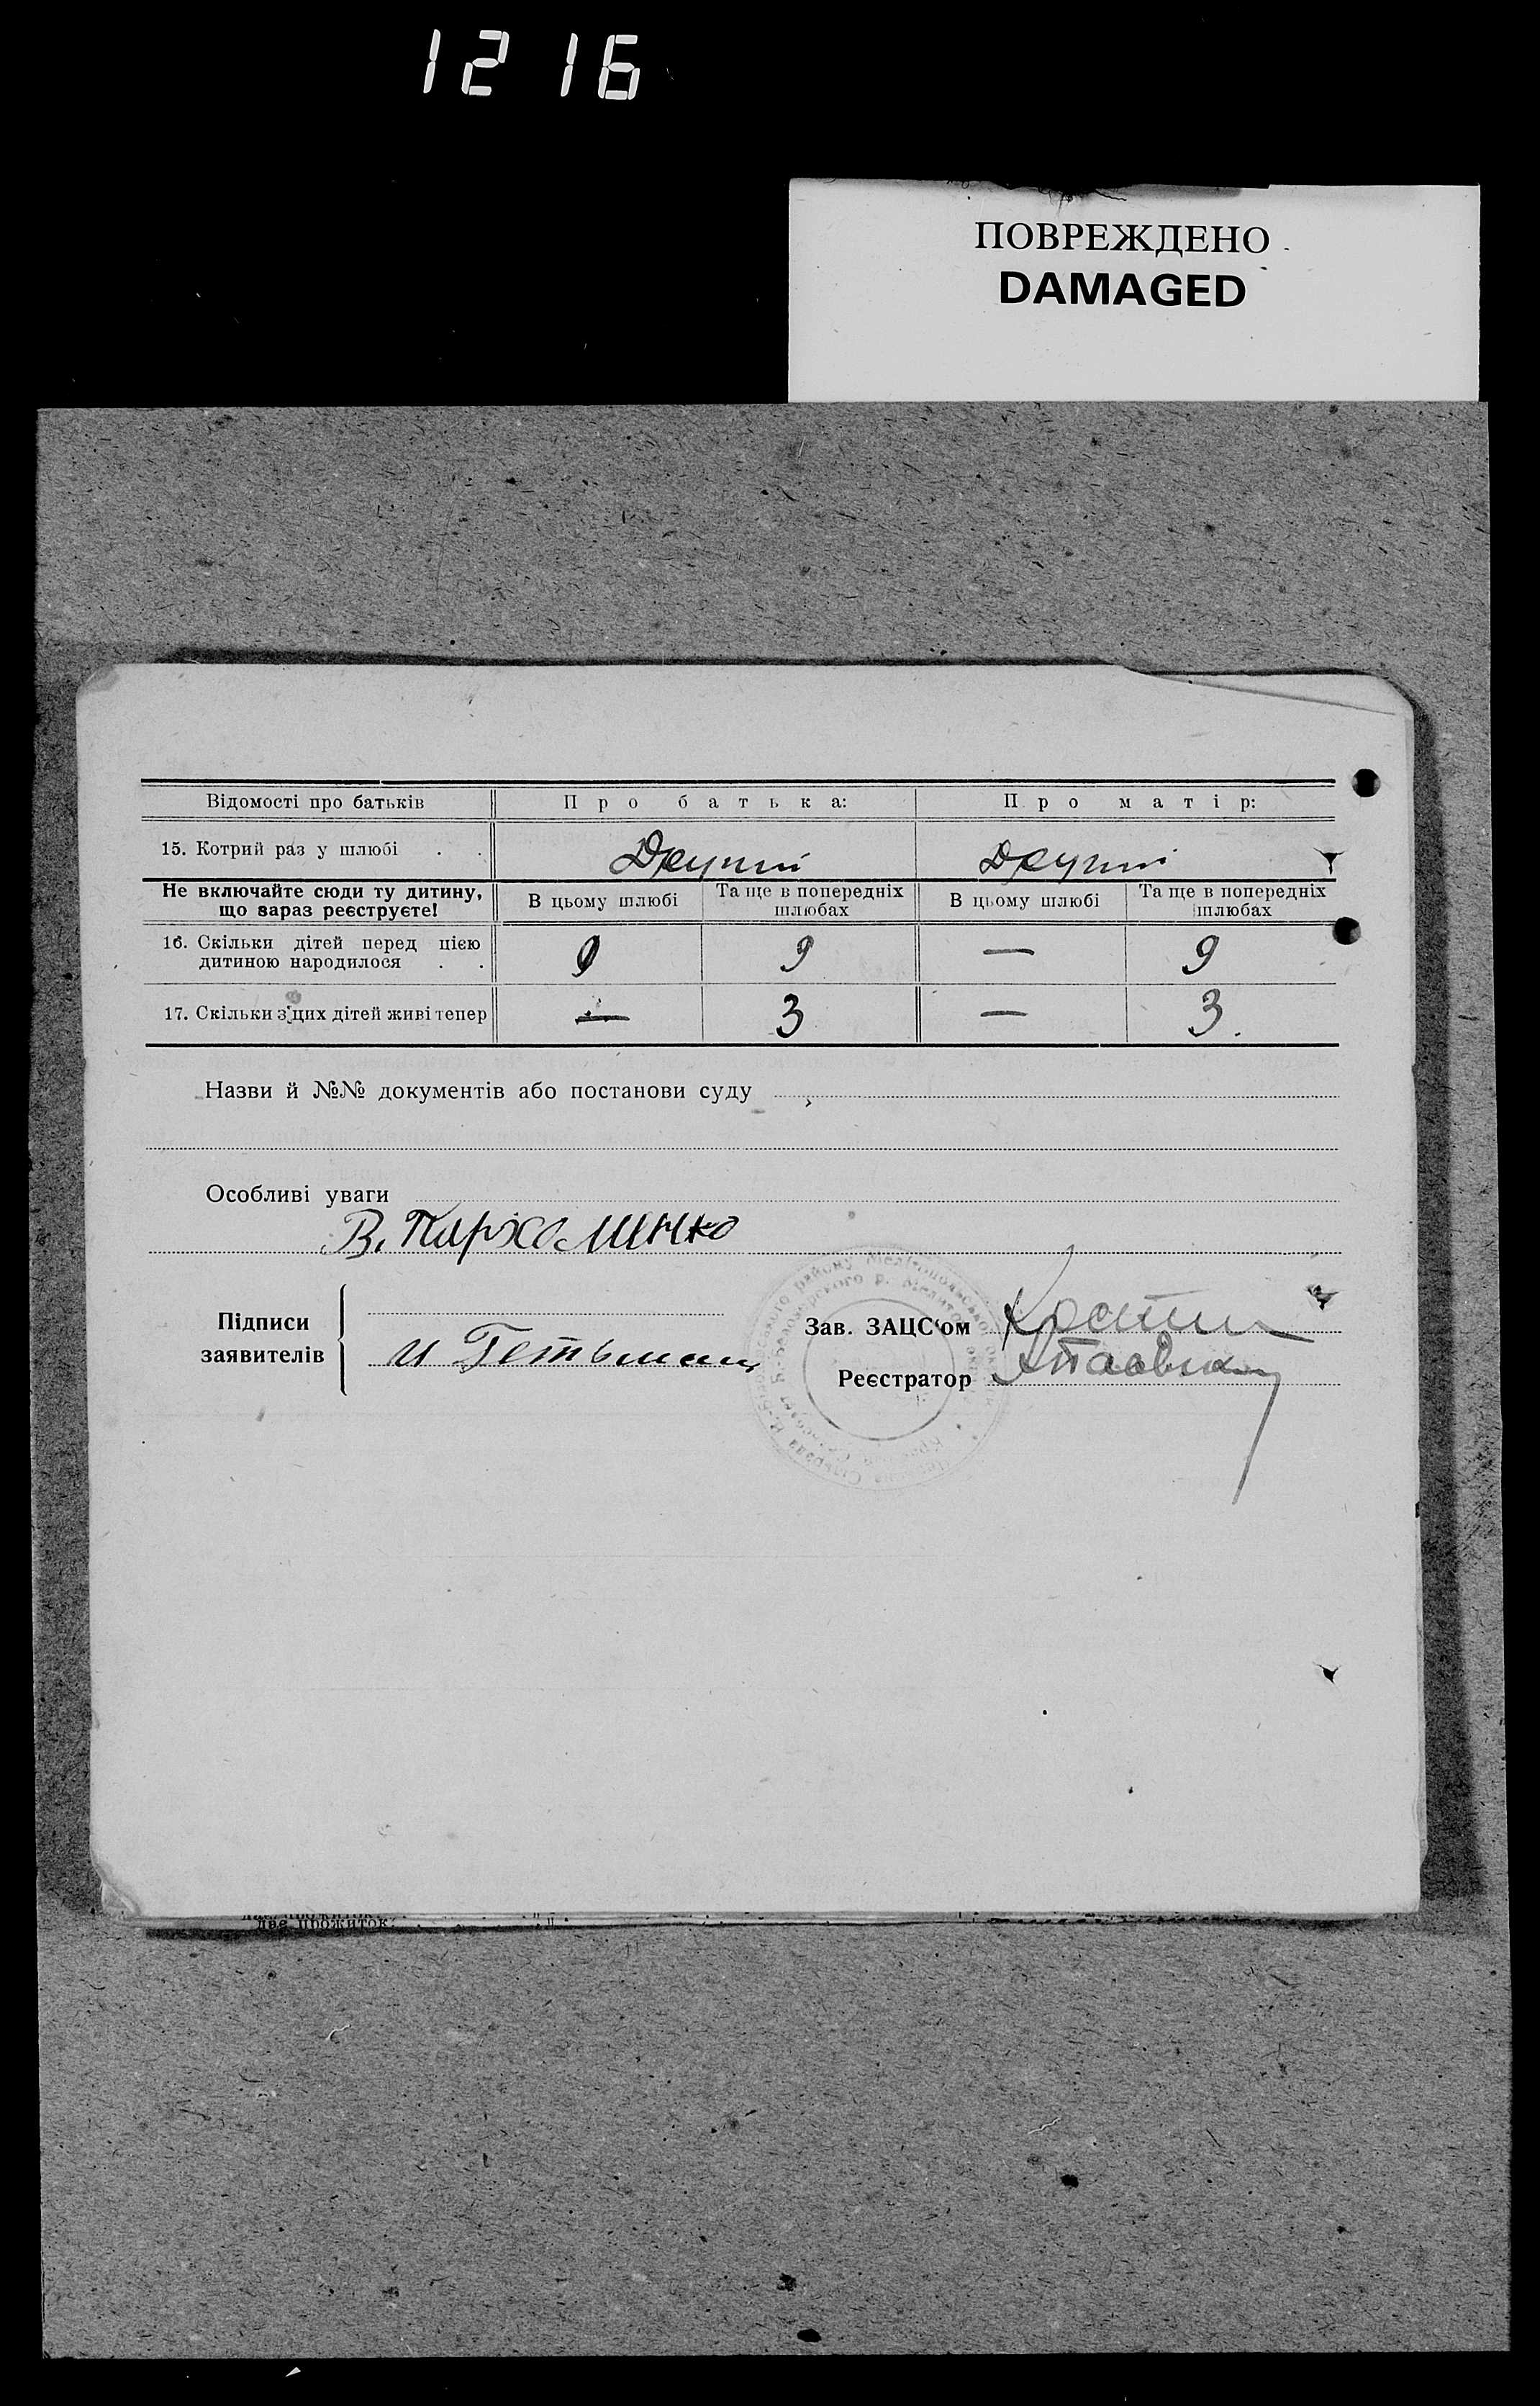 1216
ПОВРЕЖДЕНО
DAMAGED
Відомості про батьків Про батька: Про матір:
15. Котрий раз у шлюбі . . Другий Другий
Не включайте сюди ту дитину, що зараз реєструєте! В цьому шлюбі Та ще в попередніх шлюбах В цьому шлюбі Та ще в попередніх шлюбах
16. Скільки дітей перед цією
дитиною народилося . . 9 — 9
17. Скільки з цих дітей живі тепер — 3 — 3.
Назви й №№ документів або постанови суду
Особливі уваги
В. Пархоменко
Підписи
заявителів
и Гетьман
Зав. ЗАЦС‘ом
Реєстратор
две прожиток